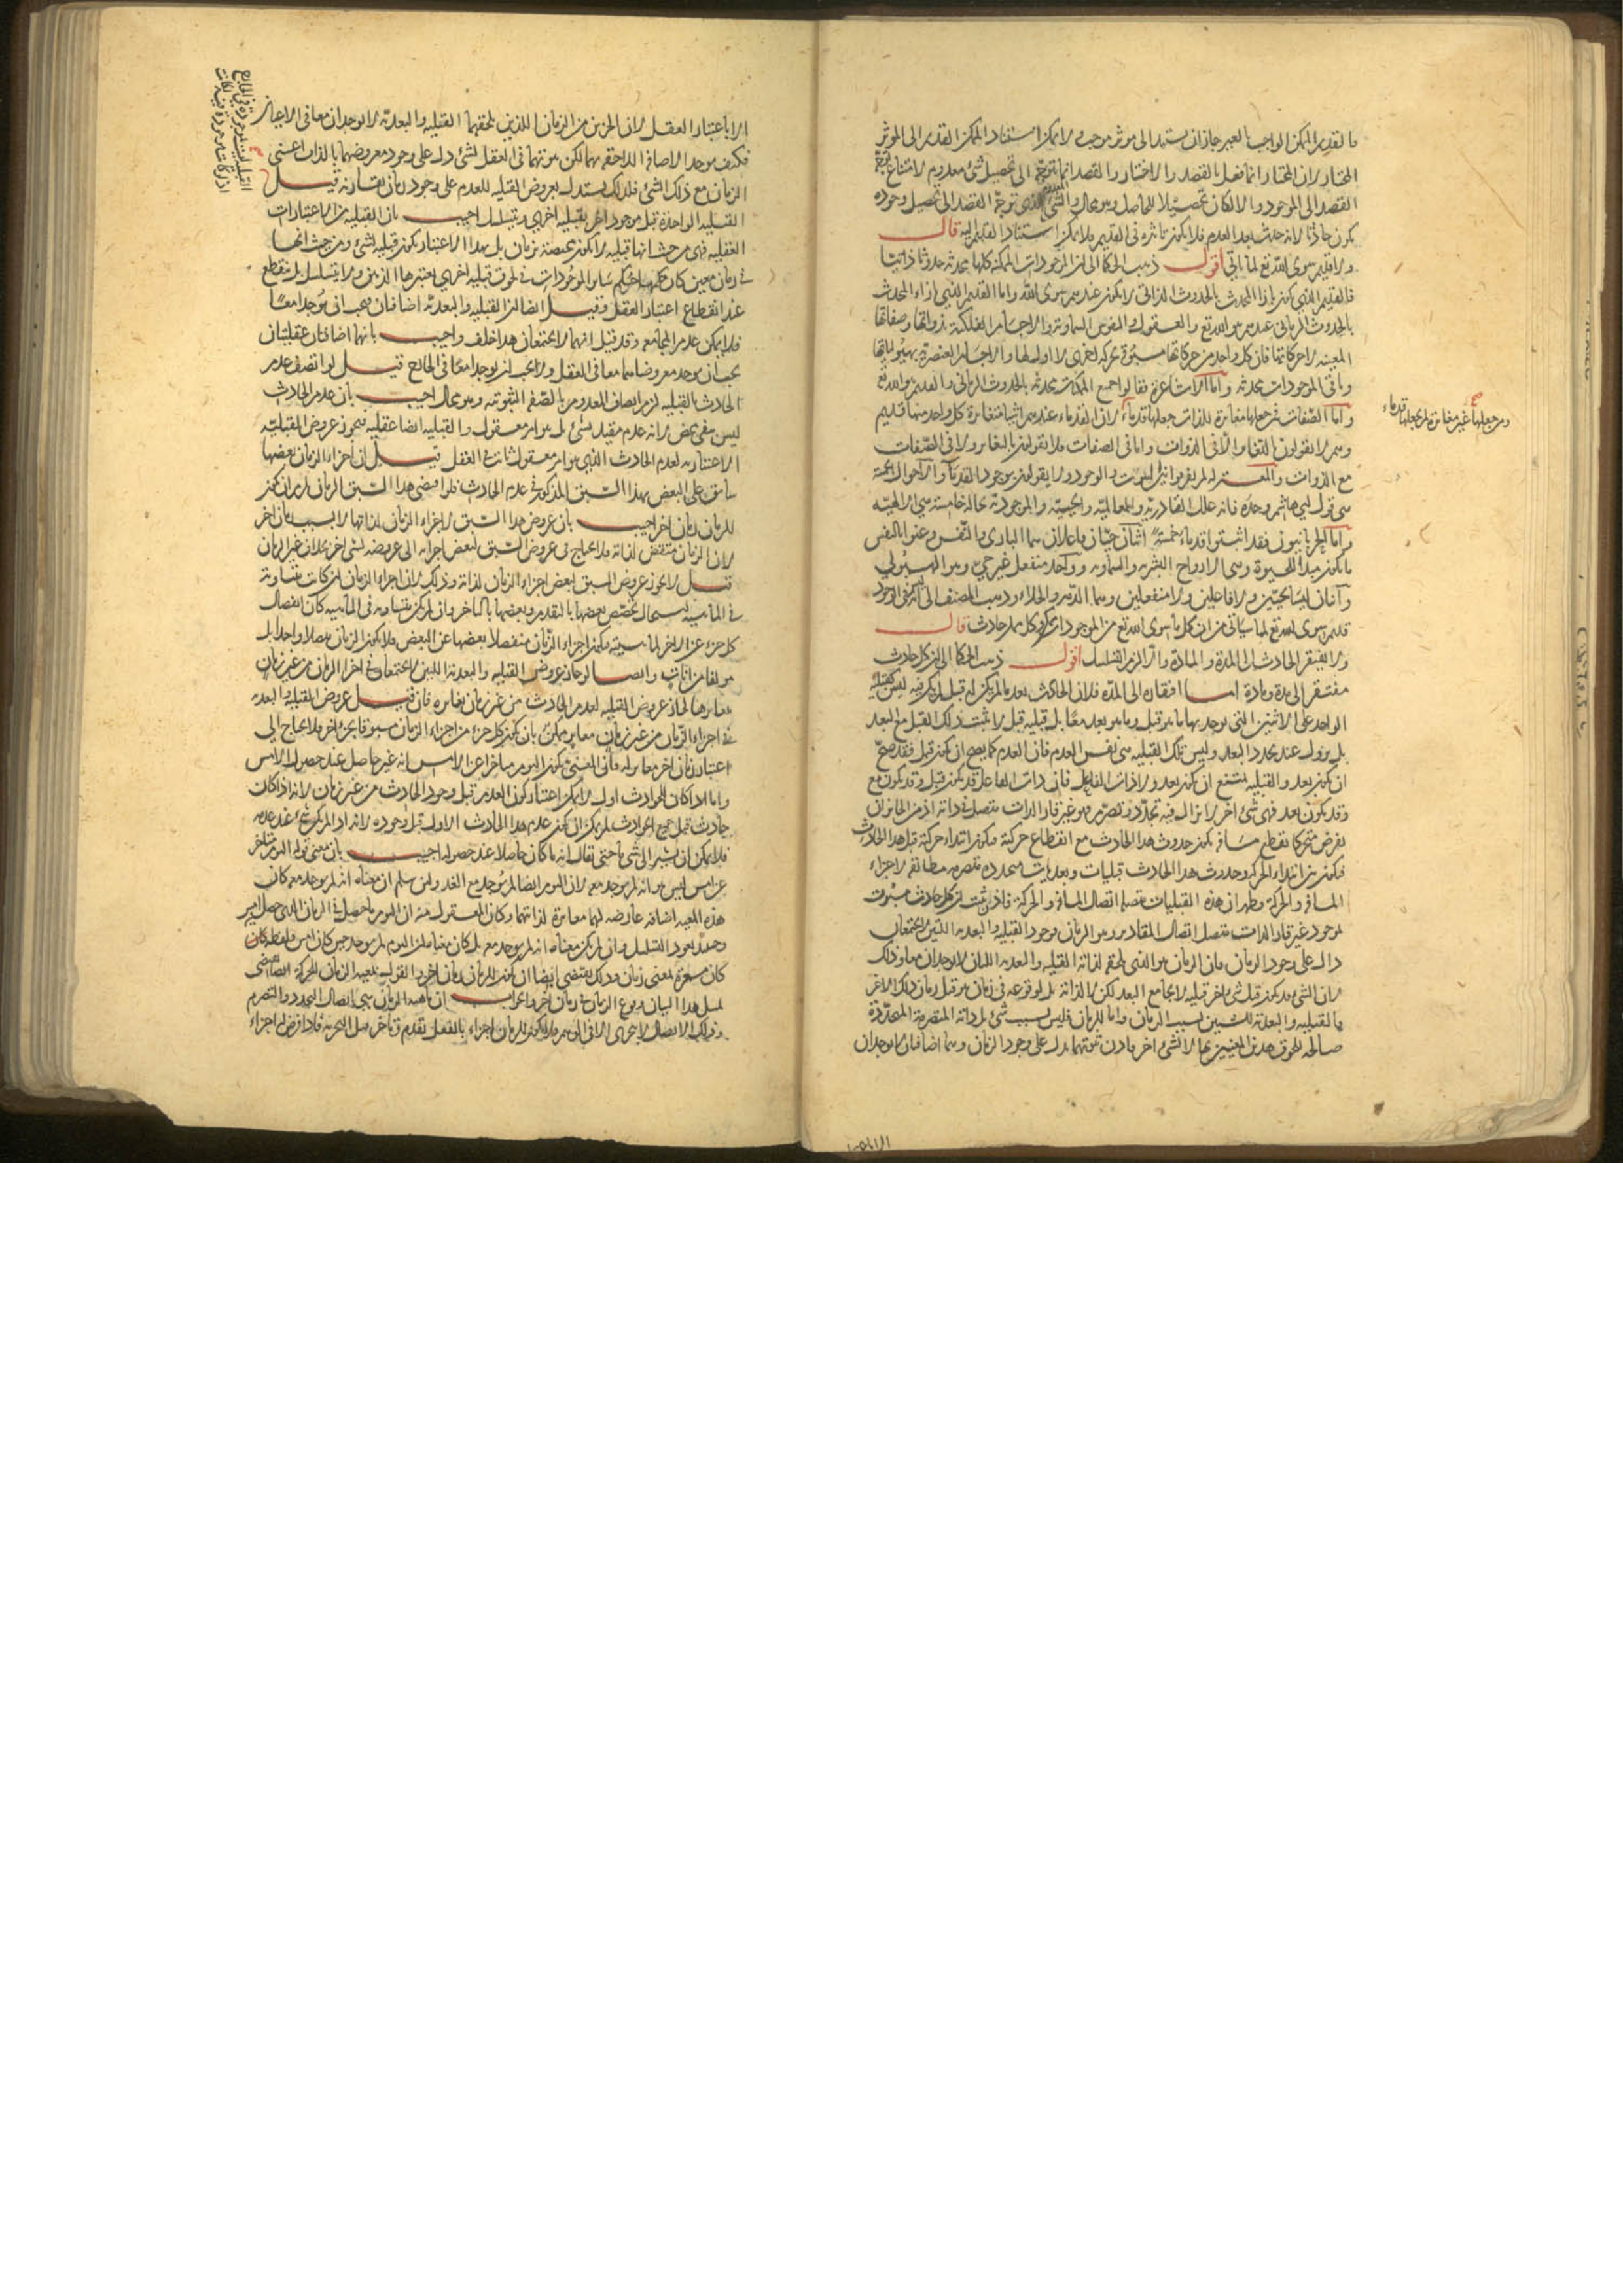 فالقديم الممكن الواجب بالغير جاز ان يستند الى موثر موجب ولا يمكن استناد الممكن القديم الى الموثر
المختار لان المختار انما يفعل بالقصد والاختيار والقصد انما يتوجه الى تحصيل شئ معدوم لامتناع توجه
القصد الى الموجود والا لكان تحصيلا للحاصل وهو محال والشئ الذى توجه القصد الى تحصيل وجوده
يكون حادثا لانه حدث بعد العدم فلا يكون تاثيره فى القديم فلا يمكن استناد القديم اليه قال
ولا قديم سوى الله تع لما ياتى اقول ذهب الحكما الى ان الموجودات الممكنة كلها محدثه حدوثا ذاتيا
فالقديم الذى يكون بازا المحدث بالحدوث الذاتى لا يكون عندهم سوى الله واما القديم الذى ازاء المحدث
بالحدوث الزمانى عندهم هو الله تع والعقول والنفوس السماوية والاجسام الفلكية بذواتها وصفاتها
المعينه الا حركاتها فان كل واحد من حركاتها مسبوق بحركه اخرى لا اول لها والاجسام العنصرية بهيولياتها
وباقى الموجودات محدثه واما الاشاعرة فقالوا جميع الممكنات محدثه بالحدوث الزمانى والقديم هو الله تع
واما الصفات فمن جعلها مغايرة للذات جعلها قدماء لان القدماء عندهم اشيا متغايرة كل واحد منها قديم
ومن جعلها غير مغايرة لم يجعلها قدماء
وهم لا يقولون بالتغاير الا فى الذوات واما فى الصفات فلا يقولون بالتغاير ولا فى الصفات
مع الذوات والمعتزله لم يفرقوا بين الثبوت والوجود ولا يقولون بوجود القدماء والاحوال الاربعة
هى قول ابى هاشم وحده فانه علل القادرية والعالمية والحيية والموجودية بحالة خامسة هى الالهيه
واما الحرنانيون فقد اثبتوا قدماء خمسة اثنان حيان فاعلان هما البارى والنفس وعنوا بالنفس
ما يكون مبدأ للحيوة وهى الارواح البشرية والسماوية وواحد منفعل غير حى وهو الهيولى
واثنان ليسا بحيين ولا فاعلين ولا منفعلين وهما الدهر والخلاء وذهب المصنف الى ان ليس فى الوجود
قديم سوى الله تع لما سياتى من ان كل ما سوى الله تع من الموجودات ممكن وكل ممكن حادث قال
ولا يفتقر الحادث الى المدة والمادة والا لزم التسلسل اقول ذهب الحكما الى ان كل حادث
مفتقر الى مدة ومادة اما افتقاره الى المدة فلان الحادث بعد ما لم يكن له قبل لم يكن فيه ليس كقبلية
الواحد على الاثنين التى يوجد بها ما هو قبل وما هو بعد معا بل قبلية قبل لا يثبت ذلك القبل مع البعد
بل يزول عند تجدد البعد وليس تلك القبليه هى نفس العدم فان العدم كما يصح ان يكون قبل فقد صح
ان يكون بعد والقبليه يمتنع ان يكون بعد ولا ذات الفاعل فان ذات الفاعل قد يكون قبل وقد يكون مع
وقد يكون بعد فهى شئ اخر لا يزال فيه تجدد وتصرم فهو غير قار الذات متصل فى ذاته اذ من الجائز ان
يفرض متحركا يقطع مسافة يكون حدوث هذا الحادث مع انقطاع حركته فيكون ابتداء حركته قبل هذا الحادث
فيكون بين ابتداء الحركة وحدوث هذا الحادث قبليات وبعديات متجددة متصرمه مطابقه لاجزاء
المسافه والحركة وظهر ان هذه القبليات متصلة اتصال المسافه والحركة فاذن ثبت ان كل حادث مسبوق
لموجود غير قار الذات متصل اتصال المقادير وهو الزمان فوجود القبليه والبعديه اللتين لا يجتمعان
دال على وجود الزمان فان الزمان هو الذى يلحقه لذاته القبليه والبعديه اللتان لا يوجدان معا وذلك
لان الشئ قد يكون قبل شئ اخر قبليه لا يجامع البعد لكن لا لذاته بل لوقوعه فى زمان هو قبل زمان ذلك الاخر
فالقبليه والبعديه للشيئين بسبب الزمان واما للزمان فليس بسبب شئ بل ذاته المتصرمة المتجددة
صالحه للحوق هذين المعنيين بها لا لشئ اخر فاذن ثبوتهما يدل على وجود الزمان وهما اضافتان لا يوجدان
الا باعتبار
الا باعتبار العقل لان الجزئين من الزمان اللذين يلحقهما القبليه والبعديه لا يوجدان معا فى الاعيان
فكيف يوجد الاضافة اللاحقه بهما لكن ثبوتهما فى العقل لشئ دل على وجود معروضهما بالذات اعنى
الزمان مع ذلك الشئ فلذلك يستدل بعروض القبليه للعدم على وجود زمان يقارنه قيل
القبلية الواحدة قبل موجود اخر بقبليه اخرى ويتسلسل اجيب بان القبليه من الاعتبارات
العقليه فهى من حيث انها قبليه لا يكون مختصة بزمان بل بهذا الاعتبار يكون قبليه لشئ ومن حيث انها
فى زمان معين كان حكمها حكم سائر الموجودات فى لحوق قبليه اخرى يعتبرها الذهن ولا يتسلسل بل ينقطع
عند انقطاع اعتبار العقل وقيل ايضا ان القبليه والبعديه اضافتان فيجب ان يوجدا معا
فلا يمكن عدم المجامعه وقد قيل انهما لا يجتمعان هذا خلف واجيب بانهما اضافتان عقليتان
يجب ان يوجد معروضاهما معا فى العقل ولا يجب ان يوجدا معا فى الخارج قيل لو اتصف عدم
الحادث بالقبليه لزم اتصاف المعدوم بالصفه الثبوتيه وهو محال اجيب بان عدم الحادث
ليس نفى محض لانه عدم مقيد بشئ بل هو امر معقول والقبليه ايضا عقليه فيجوز عروض القبليه
الاعتباريه لعدم الحادث الذى هو امر معقول ثابت فى العقل قيل ان اجزاء الزمان بعضها
سابق على البعض بهذا السبق المذكور فى عدم الحادث فلو اقتضى هذا السبق الزمان لزم ان يكون
للزمان زمان اخر اجيب بان عروض هذا السبق لاجزاء الزمان لذاتها لا بسبب زمان اخر
لان الزمان متقض لذاته فلا يحتاج فى عروض السبق لبعض اجزائه الى عروضه لشئ اخر بخلاف غير الزمان
قيل لا يجوز عروض السبق لبعض اجزاء الزمان لذاته وذلك لان اجزاء الزمان ان كانت متساوية
فى الماهيه استحال تخصص بعضها بالتقدم وبعضها بالتاخر وان لم يكن متساويه فى الماهيه كان انفصال
كل جزء عن الاخر لماهيته فيكون اجزاء الزمان منفصلا بعضها عن البعض فلا يكون الزمان متصلا واحدا بل
مولفا من انات وايضا لو جاز عروض القبليه والبعديه اللتين لا يجتمعان فى اجزاء الزمان من غير زمان
مغاير لها لجاز عروض القبليه لعدم الحادث من غير زمان يغايره فان قيل عروض القبليه والبعديه
فى اجزاء الزمان من غير زمان مغاير ممكن بان يكون كل جزء من اجزاء الزمان مسبوقا بجزء اخر فلا يحتاج الى
اعتبار زمان اخر مغاير له فان المعنى بكون اليوم متاخرا عن الامس انه غير حاصل عند حصول الامس
واما اذا كان للحوادث اول لا يمكن اعتبار كون العدم قبل وجود الحادث من غير زمان لانه اذا كان
حادث قبل جميع الحوادث لم يكن ان يكون عدم هذا الحادث الاول قبل وجوده لانه اذا لم يكن شئ عند عدمه
فلا يمكن ان يشير الى شئ ما حتى يقال انه ما كان حاصلا عند حصوله اجيب بان معنى قولنا اليوم متاخر
عن امس ليس هو انه لم يوجد معه لان اليوم ايضا لم يوجد مع الغد ولئن سلم ان معناه انه لم يوجد معه كان
هذه المعيه اضافه عارضه لهما مغايرة لذاتهما وكان المعقول منه ان اليوم ما حصل فى الزمان الذى حصل امس
وحينئذ يعود التسلسل وان لم يكن معناه انه لم يوجد معه بل كان معناه ان اليوم لم يوجد حين كان امس فلفظة كان
كان مشعرة لمعنى زمان وذلك يقتضى ايضا ان يكون للزمان زمان اخر والقول بمعيه الزمان للحركة ايضا يقتضى
لمثل هذا البيان وقوع الزمان فى زمان اخر والجواب ان ماهية الزمان هى اتصال التجدد والتصرم
وذلك الاتصال لا يتجزى الا فى الوهم فلا يكون للزمان اجزاء بالفعل تقدم وتاخر قبل التجزيه فاذا فرض له اجزاء